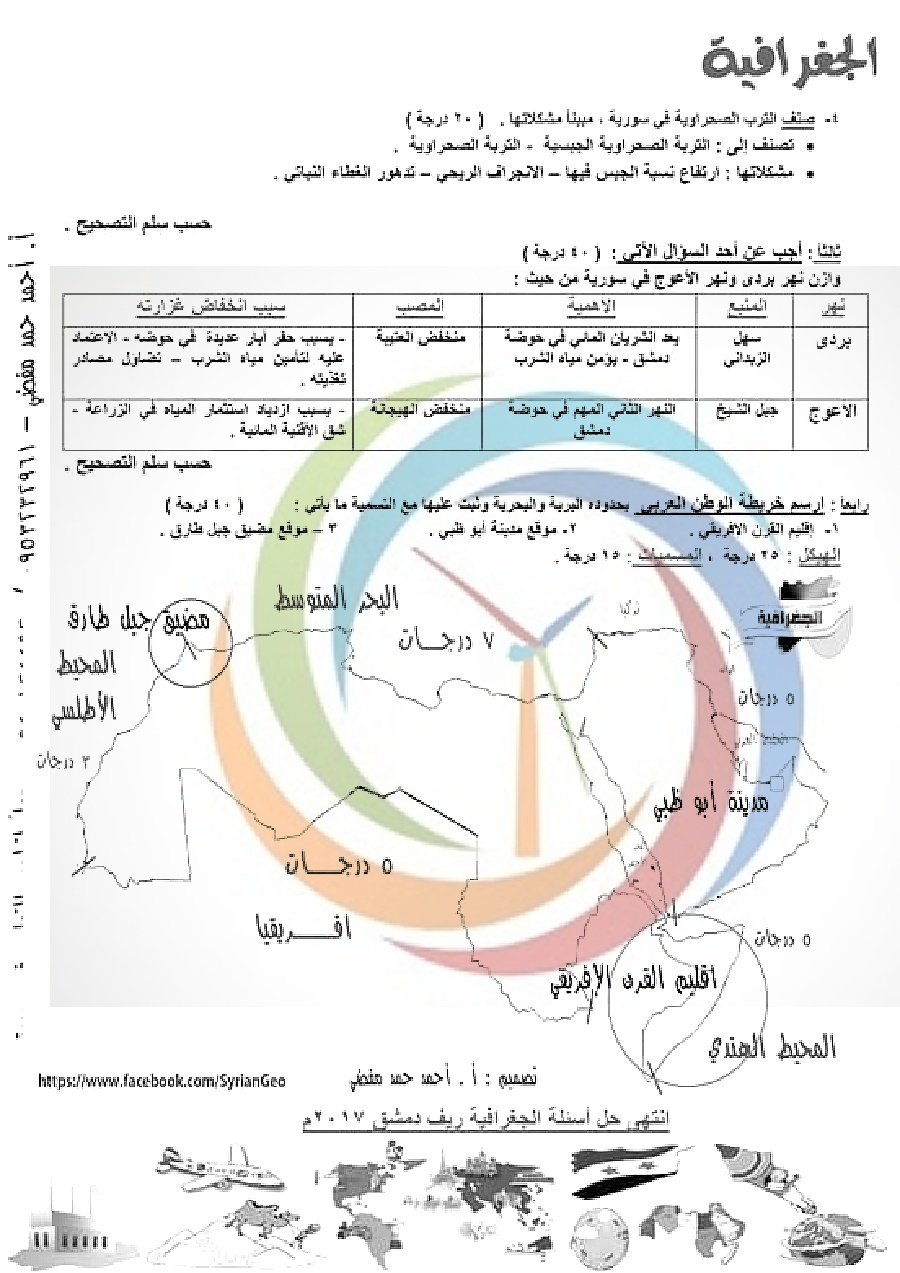 الجغرافية
٤- صنف الترب الصحراوية في سورية ، مبيناً مشكلاتها . ( ٢٠ درجة )
• تصنف إلى : التربة الصحراوية الجبسية - التربة الصحراوية .
• مشكلاتها : ارتفاع نسبة الجبس فيها – الانجراف الريحي – تدهور الغطاء النباتي .
حسب سلم التصحيح .
ثالثاً : أجب عن أحد السؤال الآتي : ( ٤٠ درجة )
وازن نهر بردى ونهر الأعوج في سورية من حيث :
نهر المنبع الأهمية المصب سبب انخفاض غزارته
بردى سهل الزبداني يعد الشريان المائي في حوضة دمشق - يؤمن مياه الشرب منخفض العتيبة - بسبب حفر آبار عديدة في حوضه - الاعتماد عليه لتأمين مياه الشرب – تضاؤل مصادر تغذيته .
الأعوج جبل الشيخ النهر الثاني المهم في حوضة دمشق منخفض الهيجانة - بسبب ازدياد استثمار المياه في الزراعة - شق الأقنية المائية .
حسب سلم التصحيح .
رابعاً : ارسم خريطة الوطن العربي بحدوده البرية والبحرية وثبت عليها مع التسمية ما يأتي : ( ٤٠ درجة )
١- إقليم القرن الافريقي . ٢- موقع مدينة أبو ظبي . ٣ – موقع مضيق جبل طارق .
الهيكل : ٢٥ درجة ، المسميات : ١٥ درجة .
البحر المتوسط
مضيق جبل طارق
الجغرافية
٧ درجات
المحيط
الأطلسي
٥ درجات
٣ درجات
مدينة أبو ظبي
٥ درجات
افريقيا
٥ درجات
اقليم القرن الإفريقي
المحيط الهندي
أ. أحمد حمد مقضي – ٠٩٥٣٢٣٢٩٦١
تصميم : أ . أحمد حمد مقضي
https://www.facebook.com/SyrianGeo
انتهى حل أسئلة الجغرافية ريف دمشق ٢٠١٧م